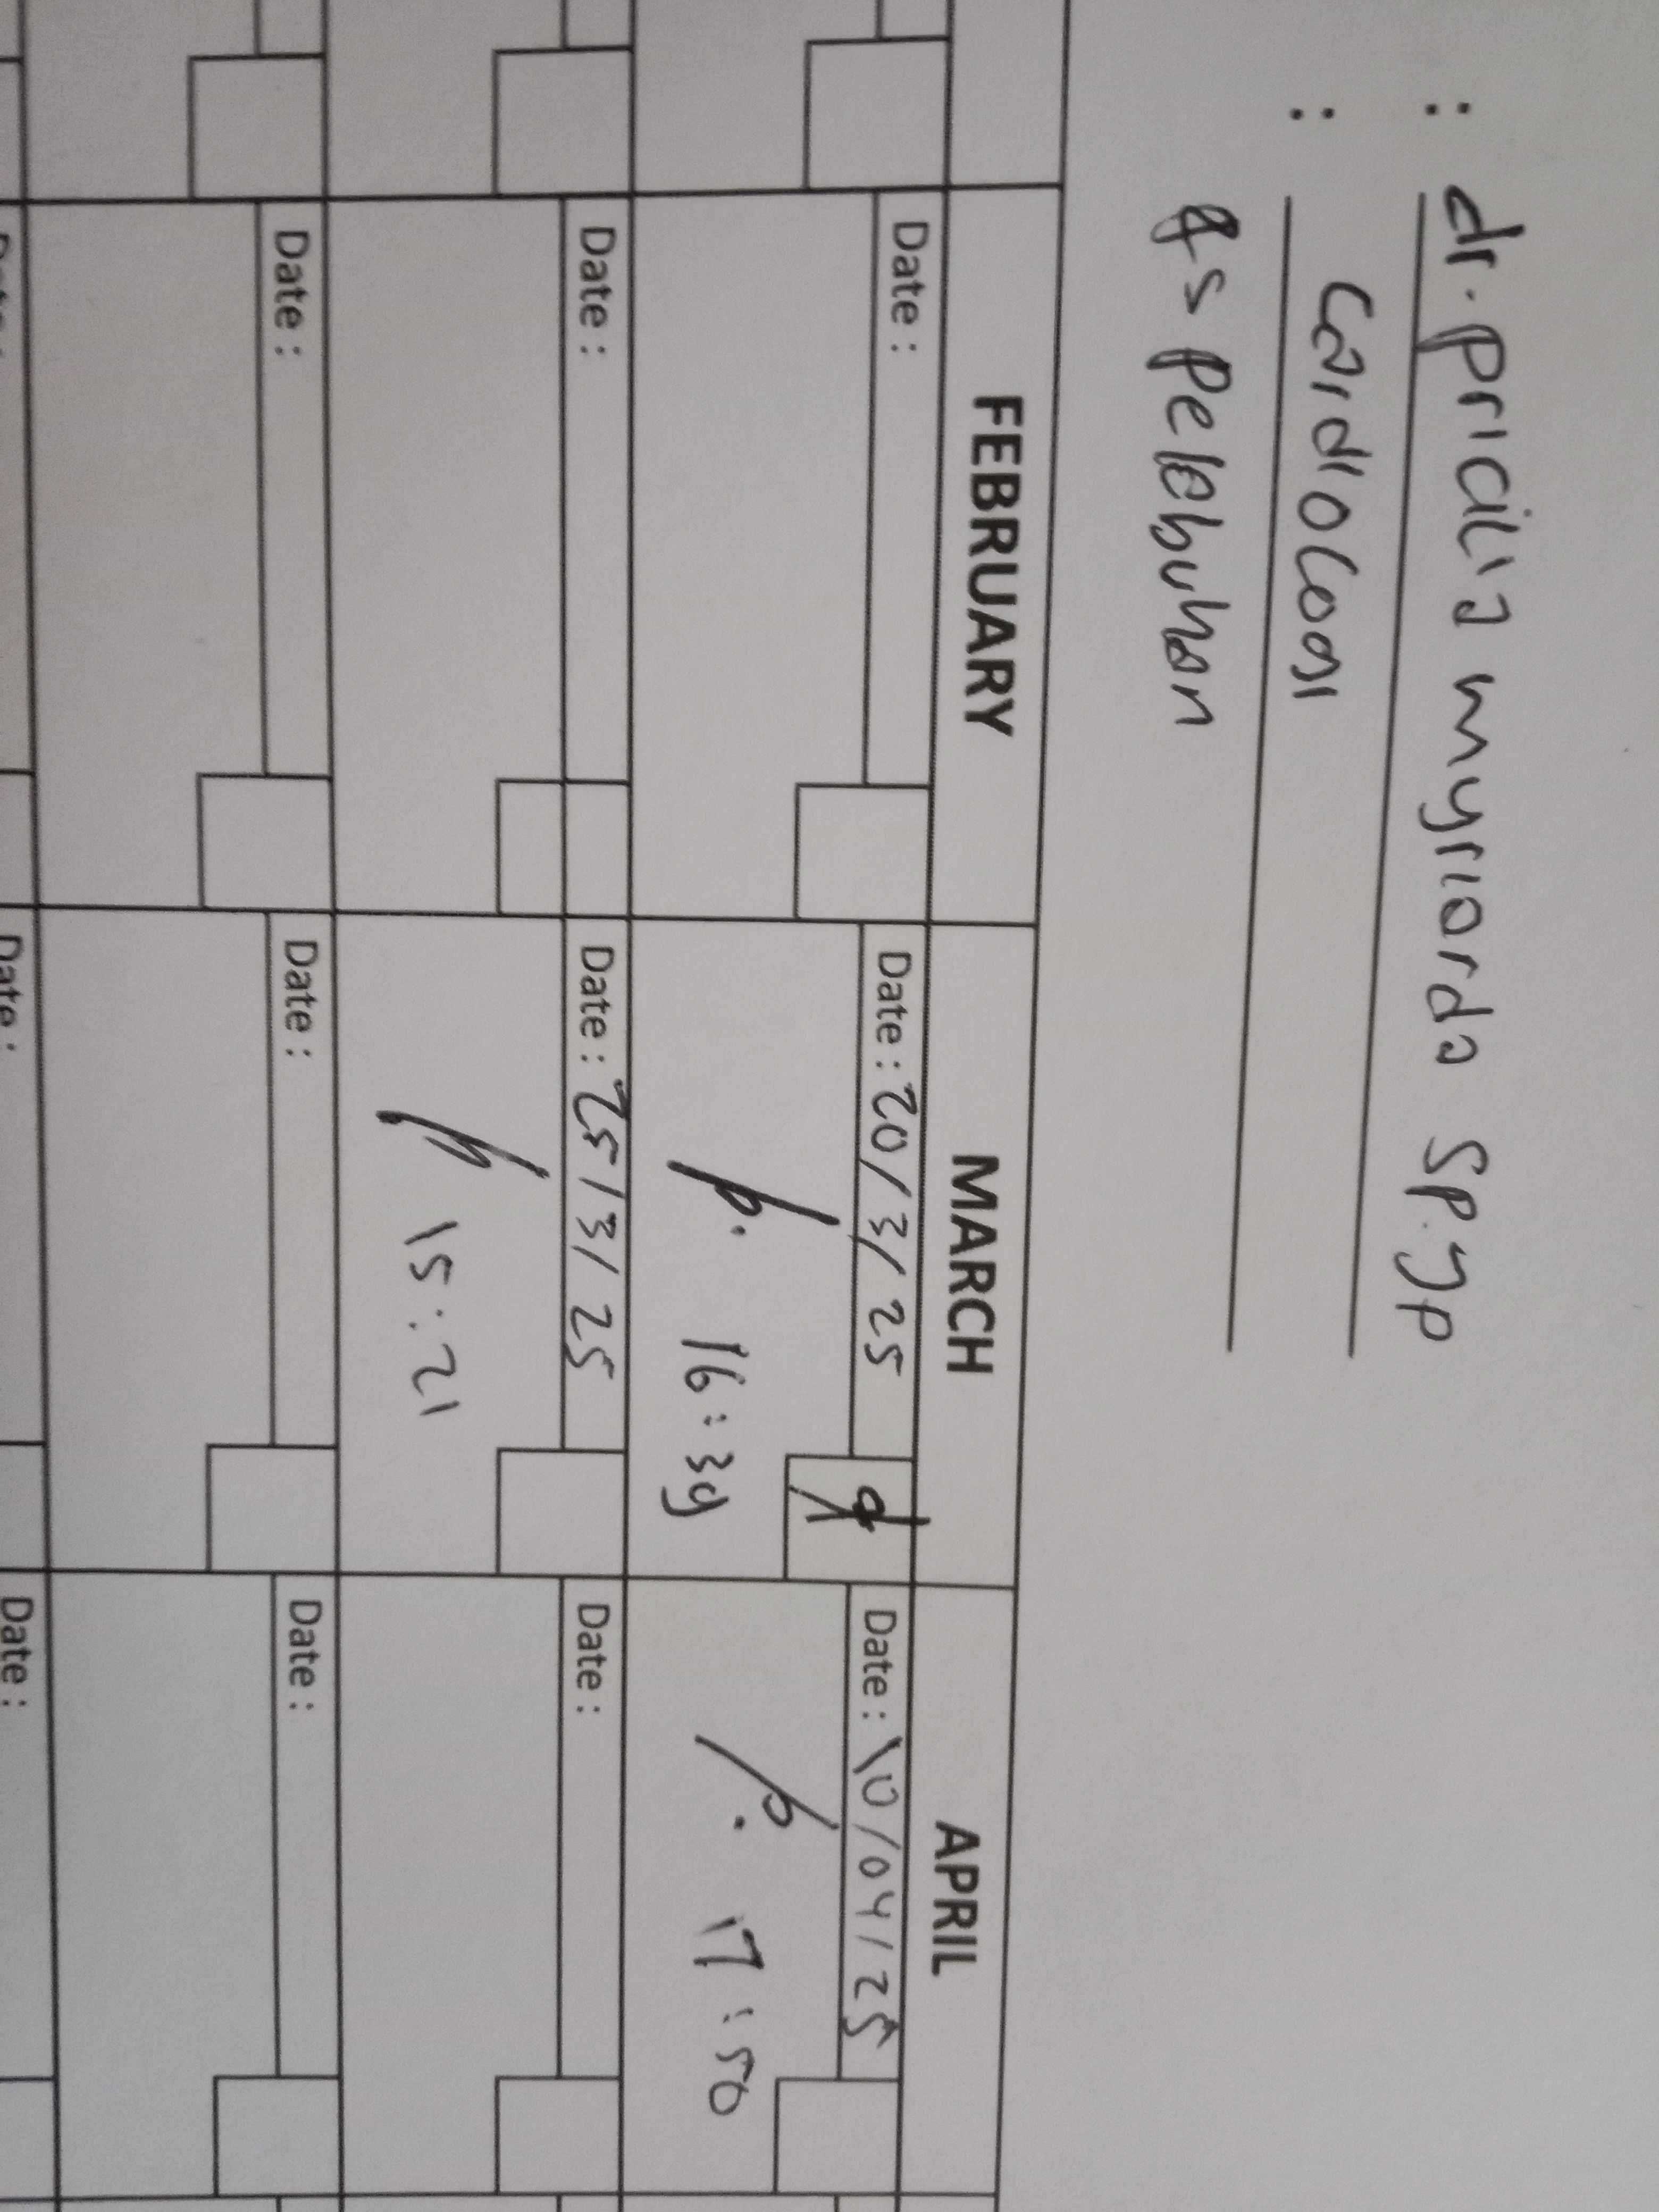 : dr. pricilia myriarda Sp.Jp
: Cardiologi
RS Pelabuhan
FEBRUARY MARCH APRIL
Date : Date : 20/3/25 Date : 10/04/25
16:39 17:50
Date : Date : 25/3/25 Date :
15:21
Date : Date : Date :
Date : Date : Date :